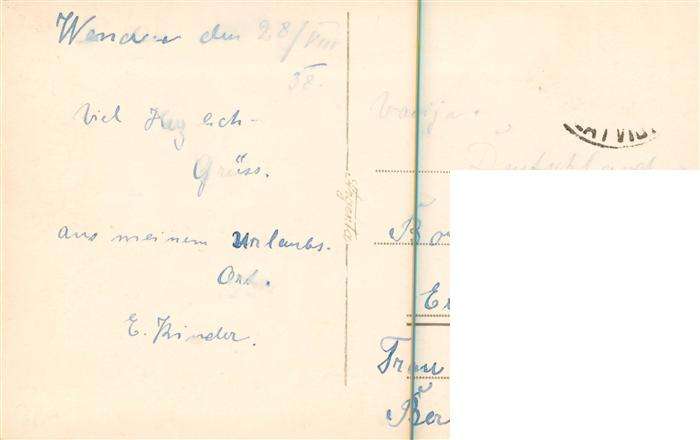 Wenden den 28/VIII
38.
Viel Herzlich-
Grüss.
aus meinem Urlaubs-
Ort.
E. Kinder.
Vacija.
Deutschland
LATVIJA
Frau
Ber